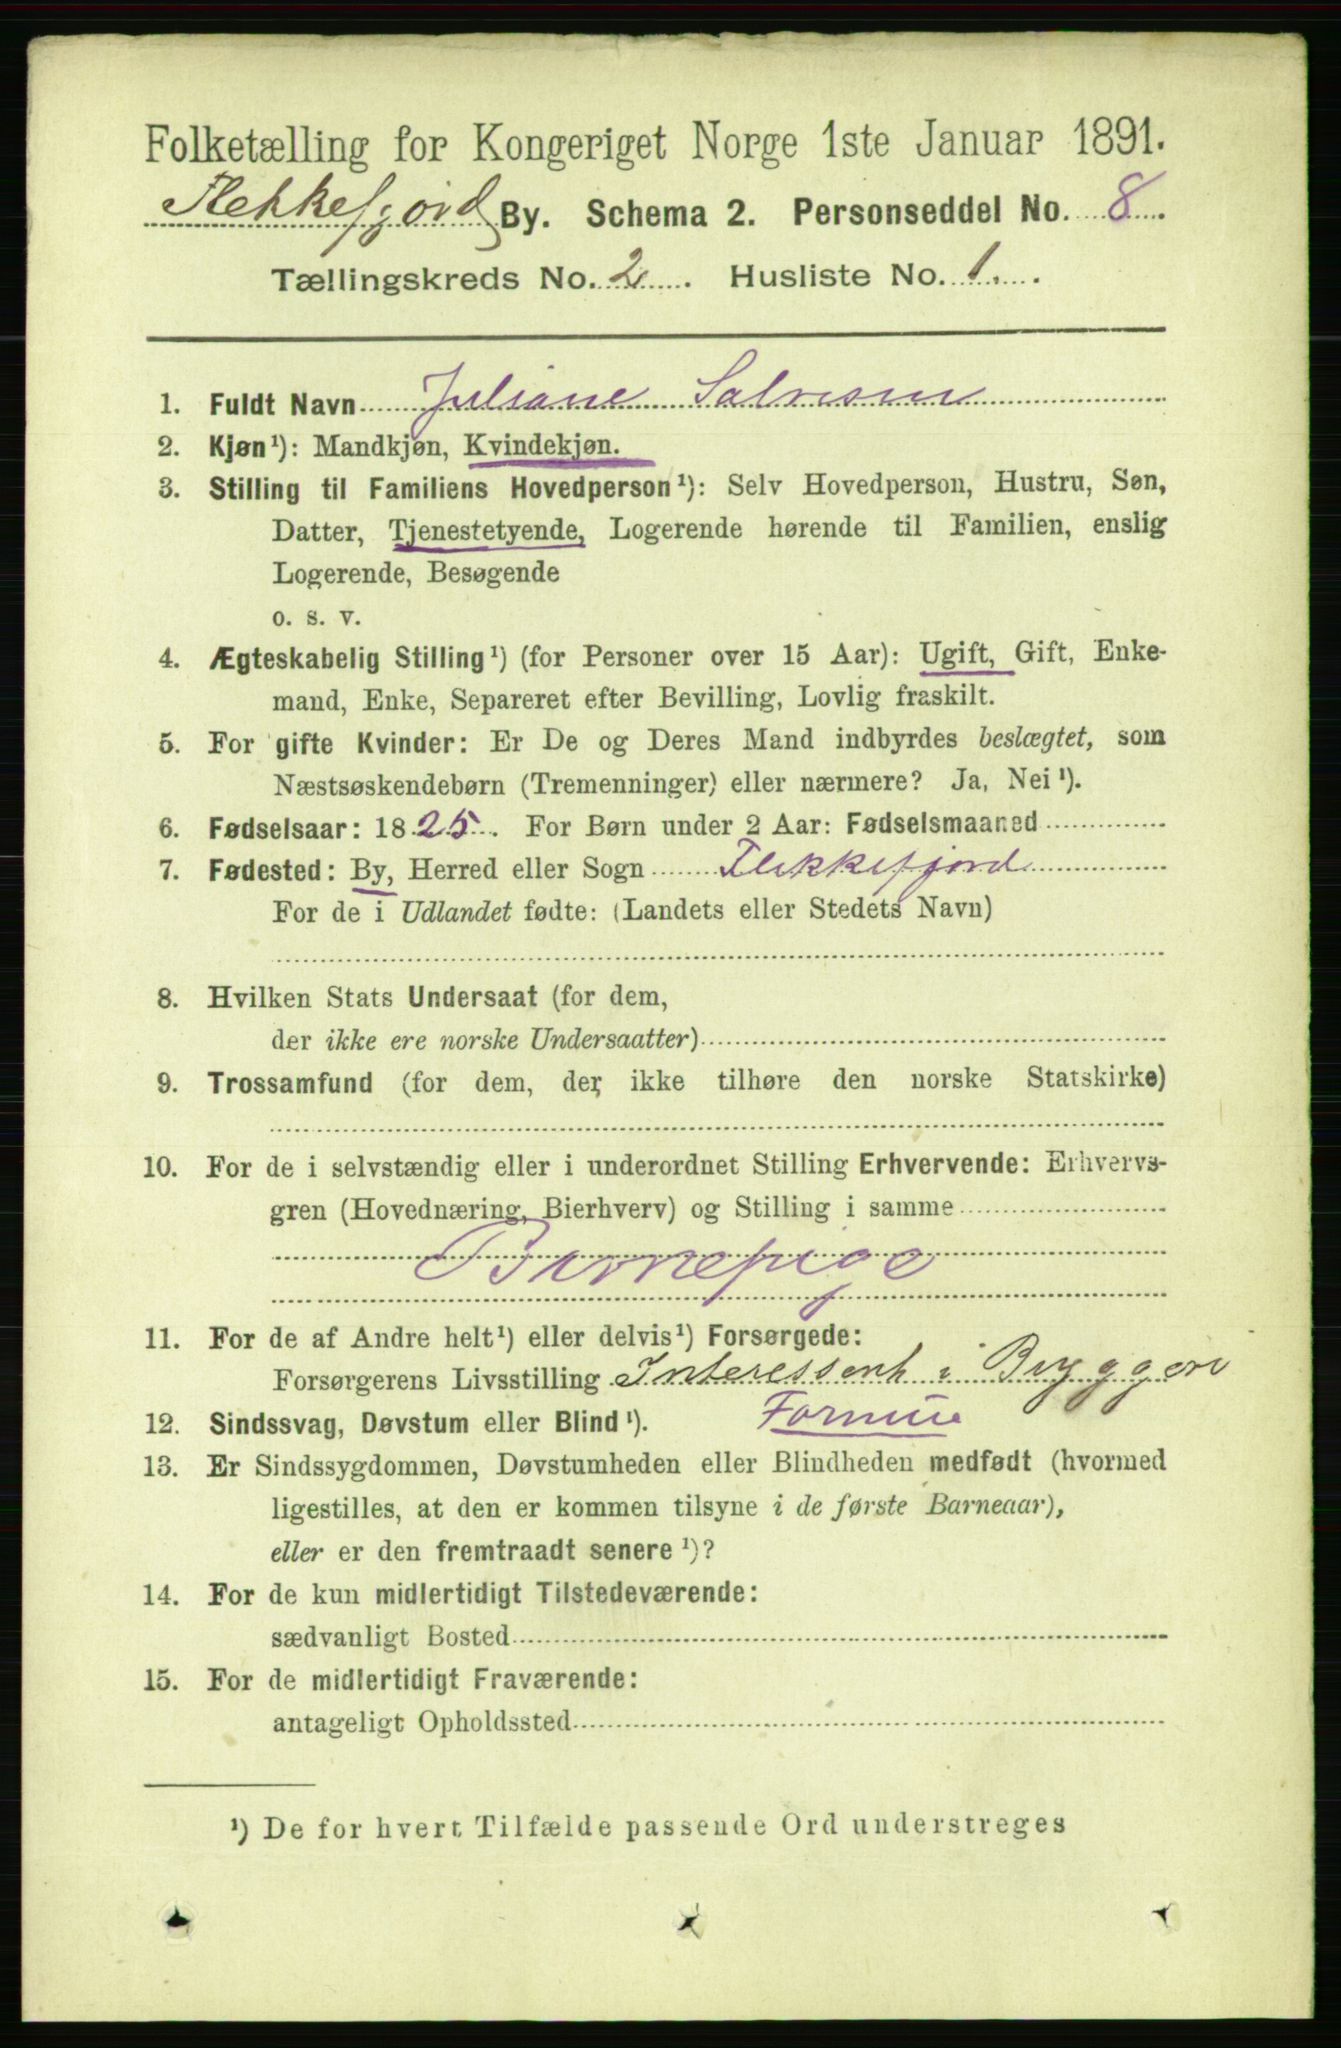 Folketælling for Kongeriget Norge 1ste Januar 1891.
Flekkefjord By. Schema 2. Personseddel No. 8.
Tællingskreds No. 2. Husliste No. 1.
1. Fuldt Navn Juliane Salvesen
2. Kjøn¹): Mandkjøn, Kvindekjøn.
3. Stilling til Familiens Hovedperson¹): Selv Hovedperson, Hustru, Søn,
Datter, Tjenestetyende, Logerende hørende til Familien, enslig
Logerende, Besøgende
o. s. v.
4. Ægteskabelig Stilling¹) (for Personer over 15 Aar): Ugift, Gift, Enke-
mand, Enke, Separeret efter Bevilling, Lovlig fraskilt.
5. For gifte Kvinder: Er De og Deres Mand indbyrdes beslægtet, som
Næstsøskendebørn (Tremenninger) eller nærmere? Ja, Nei¹).
6. Fødselsaar: 1825. For Børn under 2 Aar: Fødselsmaaned
7. Fødested: By, Herred eller Sogn Flekkefjord
For de i Udlandet fødte: (Landets eller Stedets Navn)
8. Hvilken Stats Undersaat (for dem,
der ikke ere norske Undersaatter)
9. Trossamfund (for dem, der ikke tilhøre den norske Statskirke)
10. For de i selvstændig eller i underordnet Stilling Erhvervende: Erhvervs-
gren (Hovednæring, Bierhverv) og Stilling i samme
Barnepige
11. For de af Andre helt¹) eller delvis¹) Forsørgede:
Forsørgerens Livsstilling Interessent i Byggeri
12. Sindssvag, Døvstum eller Blind¹). Formue
13. Er Sindssygdommen, Døvstumheden eller Blindheden medfødt (hvormed
ligestilles, at den er kommen tilsyne i de første Barneaar),
eller er den fremtraadt senere¹)?
14. For de kun midlertidigt Tilstedeværende:
sædvanligt Bosted
15. For de midlertidigt Fraværende:
antageligt Opholdssted
¹) De for hvert Tilfælde passende Ord understreges